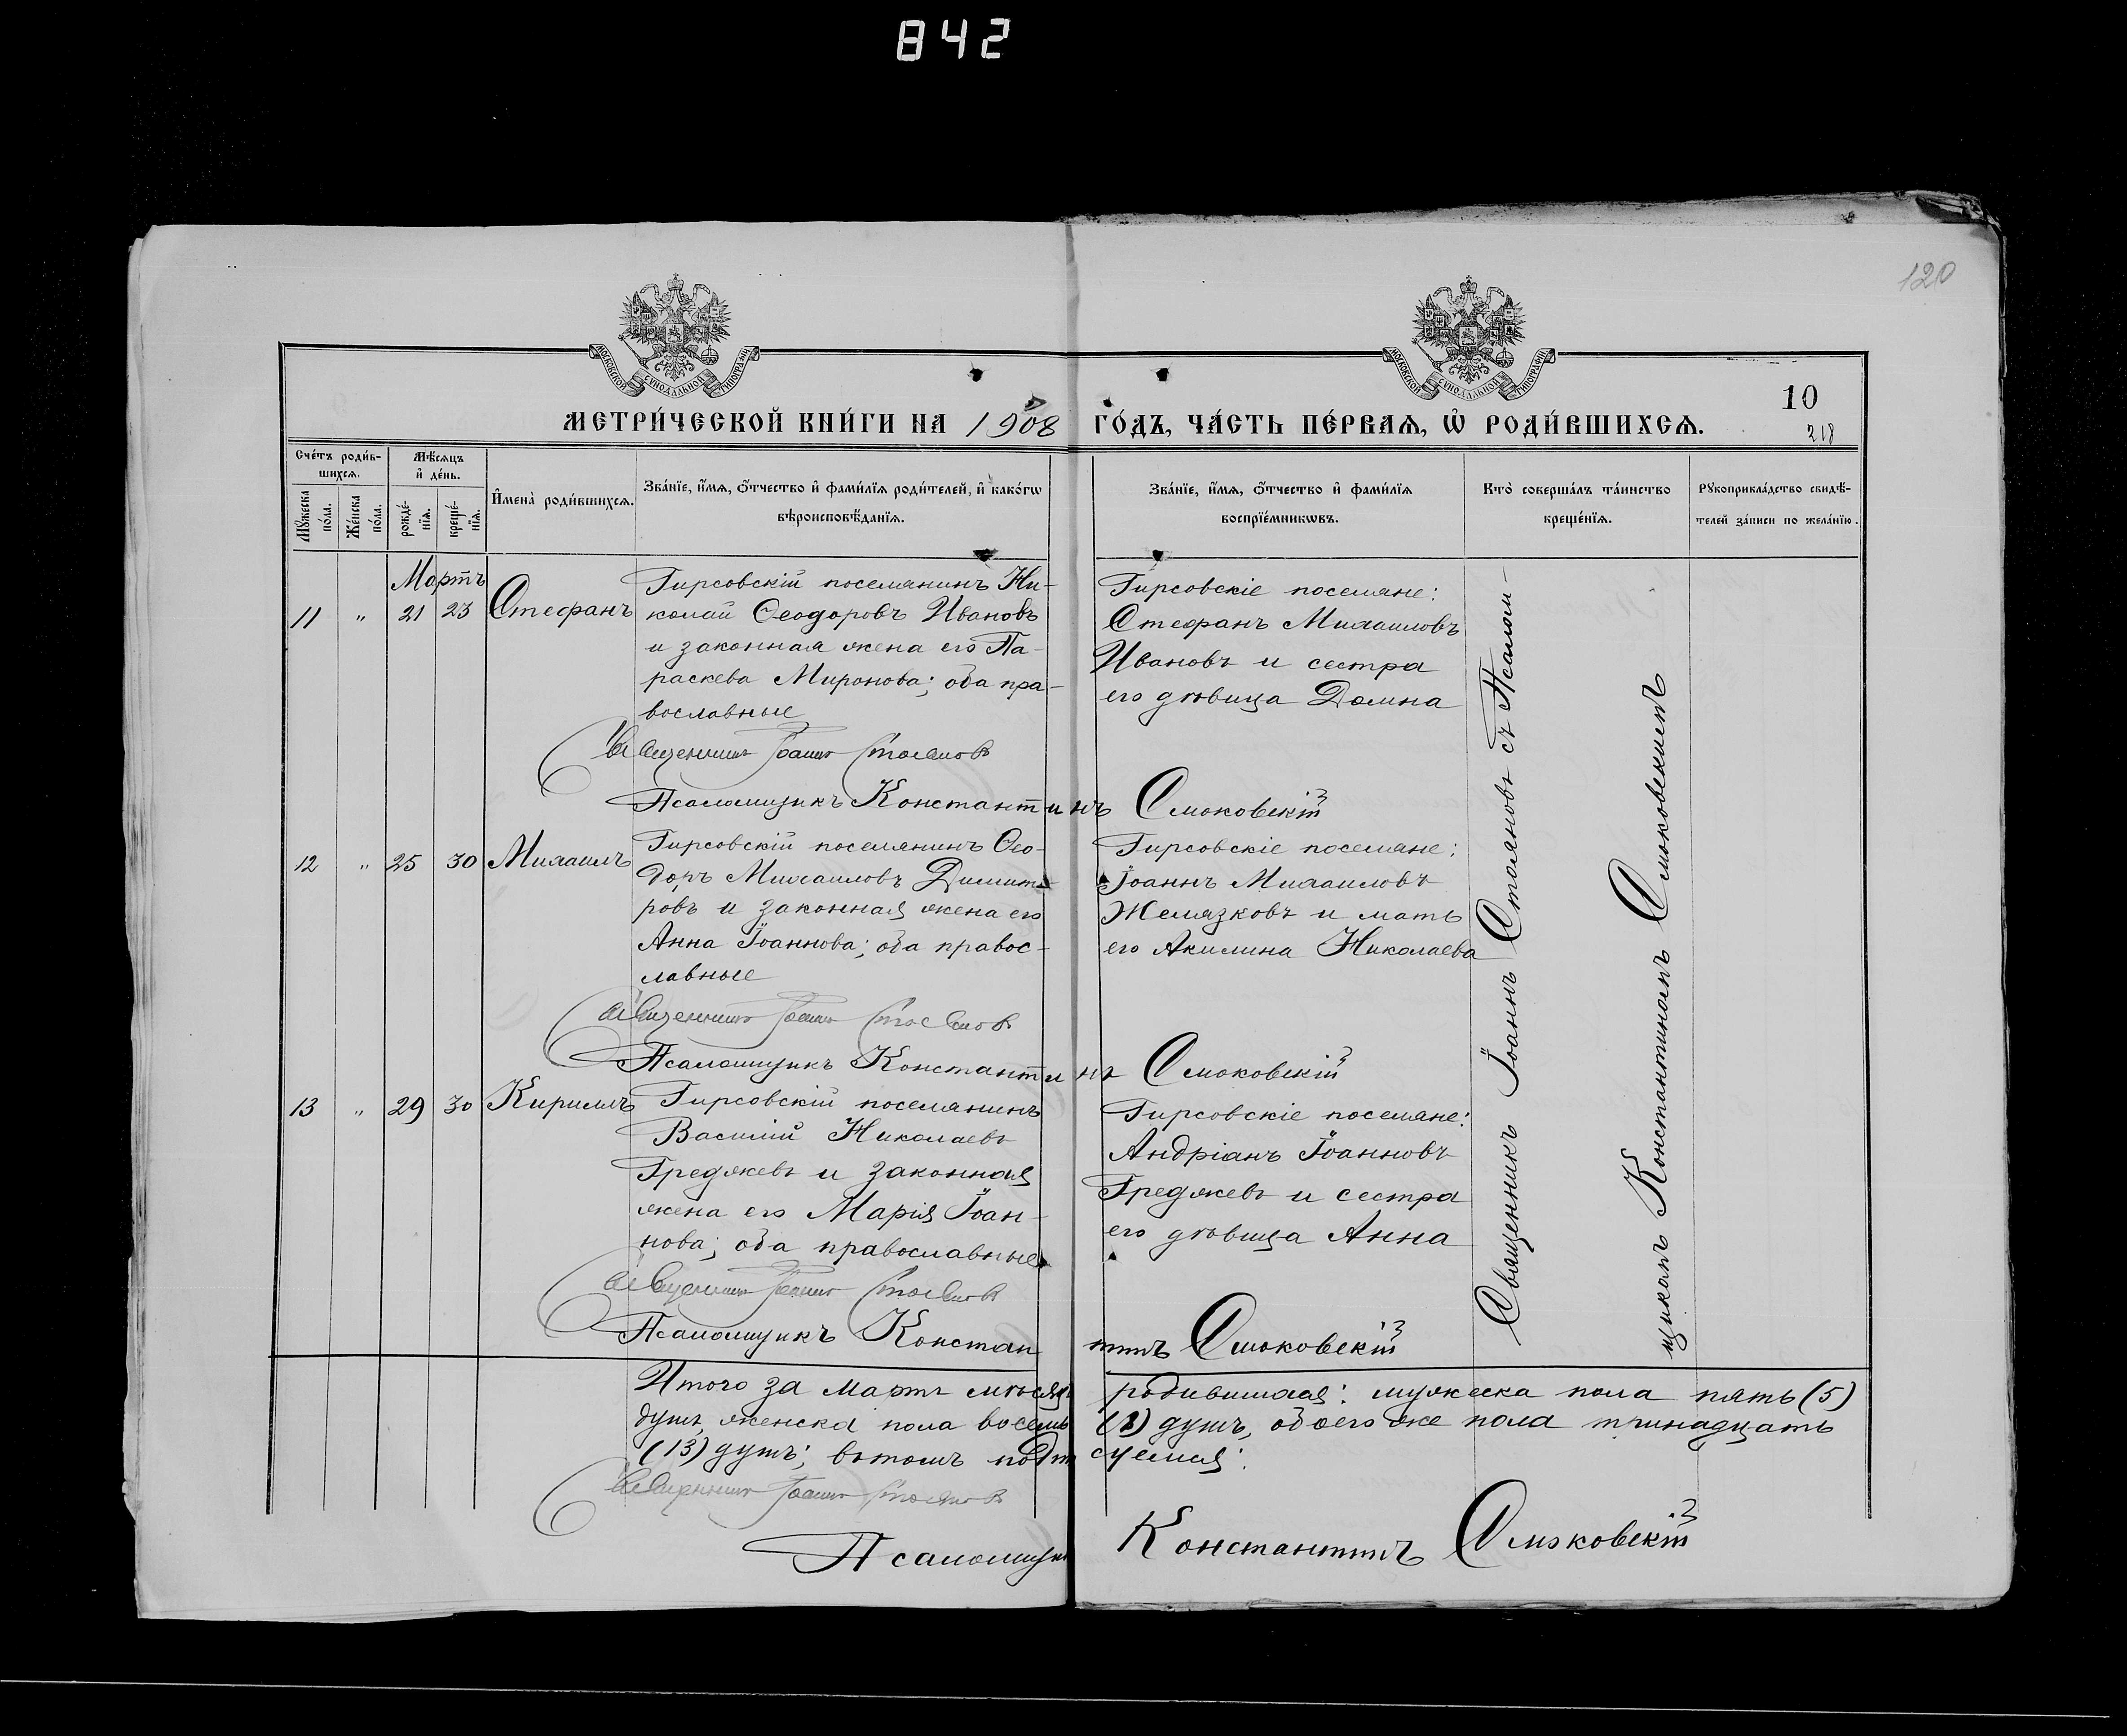 842
120
МОСКОВСКОЙ СѴНОДАЛЬНОЙ ТИПОГРАФІИ
МОСКОВСКОЙ СѴНОДАЛЬНОЙ ТИПОГРАФІИ
10
МЕТРИ́ЧЕСКОЙ КНИ́ГИ НА 1908 ГО́ДЪ, ЧА́СТЬ ПЕ́РВАѦ, Ѡ҆ РОДИ́ВШИХСѦ.
218
Сче́тъ роди́в-
шихсѧ.
Мꙋ́жеска по́ла.
Же́нска по́ла.
Мѣ́сѧцъ
и҆ де́нь.
рожде́-
нїѧ.
креще́-
нїѧ.
И҆мена̀ роди́вшихсѧ.
Зва́нїе, и҆́мѧ, ѻ҆́тчество и҆ фами́лїѧ роди́телей, и҆ како́гѡ
вѣроисповѣ́данїѧ.
Зва́нїе, и҆́мѧ, ѻ҆́тчество и҆ фами́лїѧ
воспрїе́мникѡвъ.
Кто̀ соверша́лъ та́инство
креще́нїѧ.
Рꙋкоприкла́дство свидѣ́-
телей за́писи по жела́нїю.
Мартъ
11 " 21 23 Стефанъ
Гирсовскій поселянинъ Ни-
колай Ѳеодоровъ Ивановъ
и законная жена его Па-
раскева Миронова; оба пра-
вославные
Гирсовскіе поселяне:
Стефанъ Михаиловъ
Ивановъ и сестра
его дѣвица Домна
Священникъ Іоаннъ Стояновъ
Псаломщикъ Константинъ Смоковскій
12 " 25 30 Михаилъ
Гирсовскій поселянинъ Ѳео-
доръ Михаиловъ Димит-
ровъ и законная жена его
Анна Іоаннова; оба правос-
лавные
Гирсовскіе поселяне:
Іоаннъ Михаиловъ
Желязковъ и мать
его Акилина Николаева
Священникъ Іоаннъ Стояновъ
Псаломщикъ Константинъ Смоковскій
13 " 29 30 Кириллъ
Гирсовскій поселянинъ
Василій Николаевъ
Греджевъ и законная
жена его Марія Іоан-
нова; оба православные
Гирсовскіе поселяне:
Андріанъ Іоанновъ
Греджевъ и сестра
его дѣвица Анна
Священникъ Іоаннъ Стояновъ
Псаломщикъ Константинъ Смоковскій
Священникъ Іоаннъ Стояновъ съ Псалом-
щикомъ Константиномъ Смоковскимъ
Итого за Мартъ мѣсяцъ родившихся: мужеска пола пять (5)
душъ, женска пола восемь (8) душъ, обоего же пола тринадцать
(13) душъ; въ томъ подписуемся:
Священникъ Іоаннъ Стояновъ
Псаломщикъ Константинъ Смоковскій